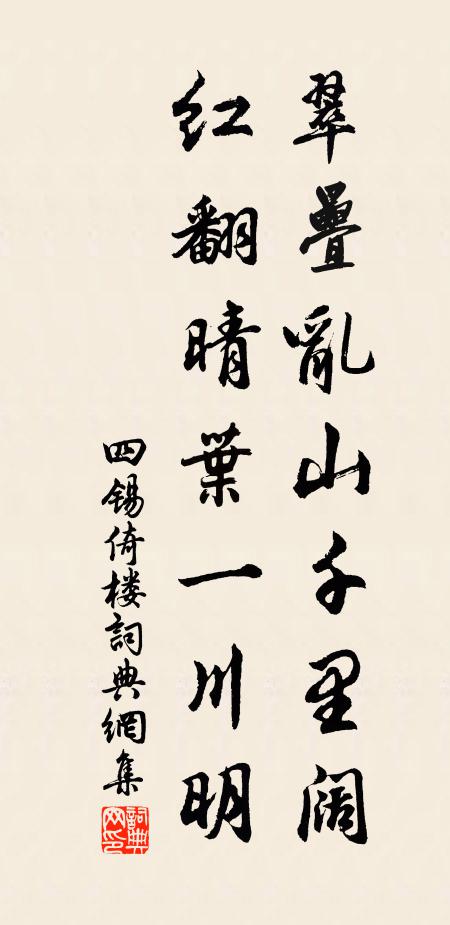 翠疊亂山千里阔
红翻晴葉一川明
四锡倚楼詞典網集
詞典网印